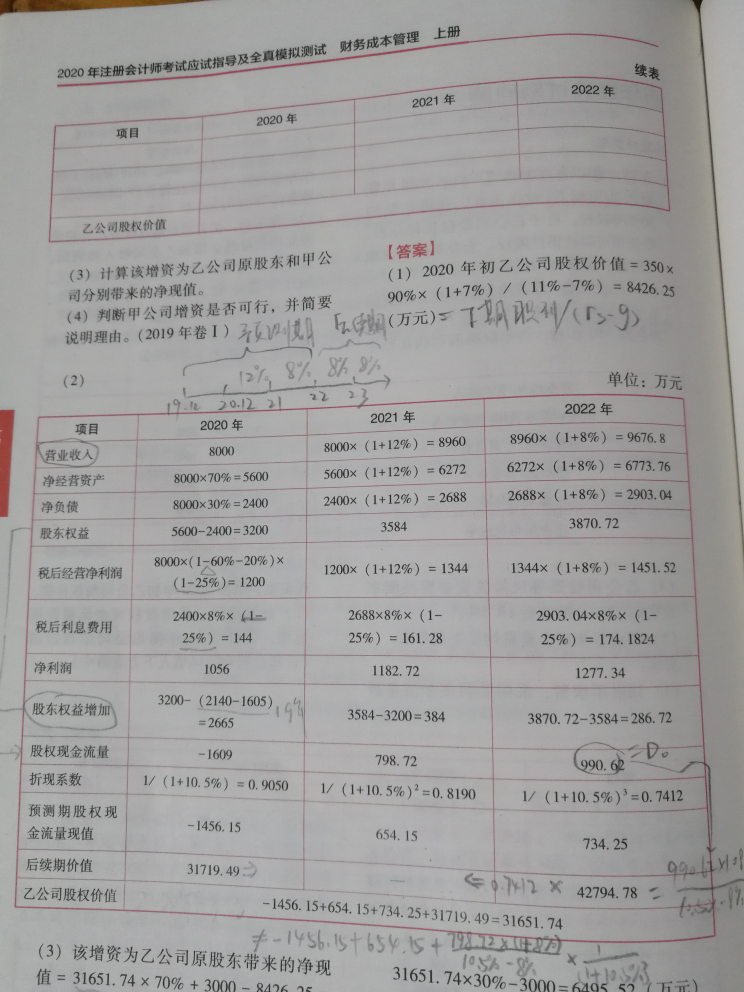 2020 年注册会计师考试应试指导及全真模拟测试 财务成本管理 上册
续表
项目 2020 年 2021 年 2022 年
乙公司股权价值
(3) 计算该增资为乙公司原股东和甲公
司分别带来的净现值。
(4) 判断甲公司增资是否可行，并简要
说明理由。(2019 年卷Ⅰ)
【答案】
(1) 2020 年初乙公司股权价值 = 350×
90%×（1+7%）/（11%-7%）= 8426.25
(万元) = 下期股利/(rs-g)
预测期 后续期
12% 8% 8% 8%
19.12 20.12 21 22 23
(2)
单位：万元
项目 2020 年 2021 年 2022 年
营业收入 8000 8000×（1+12%）= 8960 8960×（1+8%）= 9676.8
净经营资产 8000×70% = 5600 5600×（1+12%）= 6272 6272×（1+8%）= 6773.76
净负债 8000×30% = 2400 2400×（1+12%）= 2688 2688×（1+8%）= 2903.04
股东权益 5600-2400 = 3200 3584 3870.72
税后经营净利润 8000×(1-60%-20%)×
(1-25%) = 1200 1200×（1+12%）= 1344 1344×（1+8%）= 1451.52
税后利息费用 2400×8%×（1-
25%）= 144 2688×8%×（1-
25%）= 161.28 2903.04×8%×（1-
25%）= 174.1824
净利润 1056 1182.72 1277.34
股东权益增加 3200-（2140-1605）
= 2665 3584-3200 = 384 3870.72-3584 = 286.72
股权现金流量 -1609 798.72 990.62 = D₀
折现系数 1/（1+10.5%）= 0.9050 1/（1+10.5%）² = 0.8190 1/（1+10.5%）³ = 0.7412
预测期股权现
金流量现值 -1456.15 654.15 734.25
后续期价值 31719.49 — ⇐ 0.7412 × 42794.78 =
乙公司股权价值 -1456.15+654.15+734.25+31719.49 = 31651.74
≠ -1456.15+654.15+ 798.72×(1+8%)/10.5%-8% × 1/(1+10.5%)
(3) 该增资为乙公司原股东带来的净现
值 = 31651.74 × 70% + 3000 - 8426.25
31651.74×30%-3000 = 6495.52（万元）